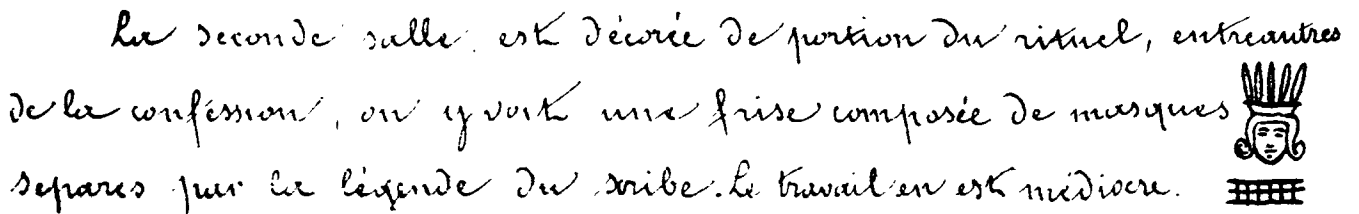 La seconde salle est décorée de portion du rituel, entreautres
de la confession, on y voit une frise composée de masques
separes par la légende du scribe. Le travail en est médiocre.